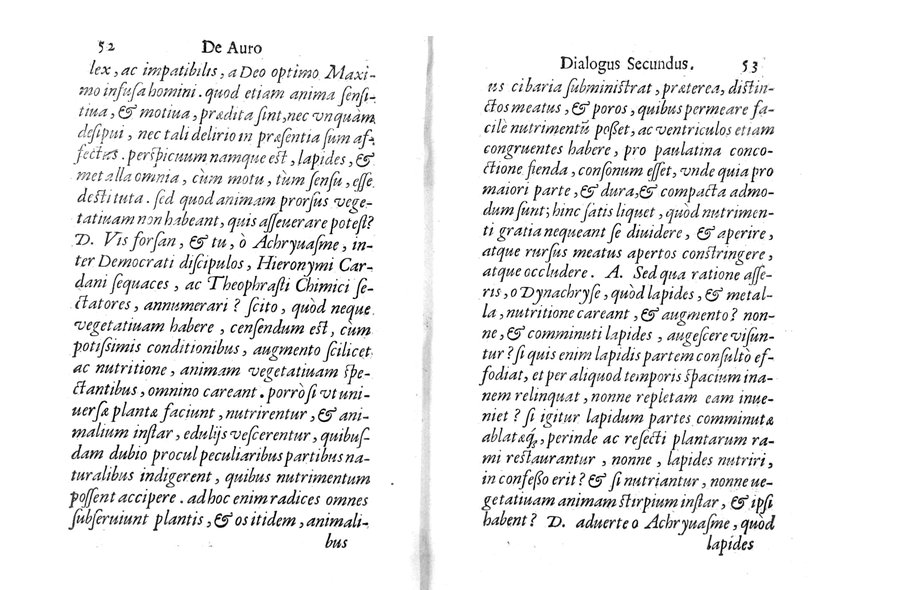 52 De Auro
lex, ac impatibilis, a Deo optimo Maxi-
mo infusa homini. quod etiam anima sensi-
tiua, & motiua, prædita sint, nec vnquàm
desipui, nec tali delirio in præsentia sum af-
fectus. perspicuum namque est, lapides, &
metalla omnia, cùm motu, tùm sensu, esse
destituta. sed quod animam prorsus vege-
tatiuam non habeant, quis asseuerare potest?
D. Vis forsan, & tu, ò Achryuasme, in-
ter Democrati discipulos, Hieronymi Car-
dani sequaces, ac Theophrasti Chimici se-
ctatores, annumerari? scito, quòd neque
vegetatiuam habere, censendum est, cùm
potissimis conditionibus, augmento scilicet
ac nutritione, animam vegetatiuam spe-
ctantibus, omnino careant. porrò si vt uni-
uersæ plantæ faciunt, nutrirentur, & ani-
malium instar, edulijs vescerentur, quibus-
dam dubio procul peculiaribus partibus na-
turalibus indigerent, quibus nutrimentum
possent accipere. ad hoc enim radices omnes
subseruiunt plantis, & os itidem, animali-
bus
Dialogus Secundus. 53
us cibaria subministrat, præterea, distin-
ctos meatus, & poros, quibus permeare fa-
cilè nutrimentū posset, ac ventriculos etiam
congruentes habere, pro paulatina conco-
ctione fienda, consonum esset, vnde quia pro
maiori parte, & dura, & compacta admo-
dum sunt; hinc satis liquet, quòd nutrimen-
ti gratia nequeant se diuidere, & aperire,
atque rursus meatus apertos constringere,
atque occludere. A. Sed qua ratione asse-
ris, o Dynachryse, quòd lapides, & metal-
la, nutritione careant, & augmento? non-
ne, & comminuti lapides, augescere visun-
tur? si quis enim lapidis partem consultò ef-
fodiat, et per aliquod temporis spacium ina-
nem relinquat, nonne repletam eam inue-
niet? si igitur lapidum partes comminutæ
ablatæq́;, perinde ac resecti plantarum ra-
mi restaurantur, nonne, lapides nutriri,
in confesso erit? & si nutriantur, nonne ue-
getatiuam animam stirpium instar, & ipsi
habent? D. aduerte o Achryuasme, quòd
lapides